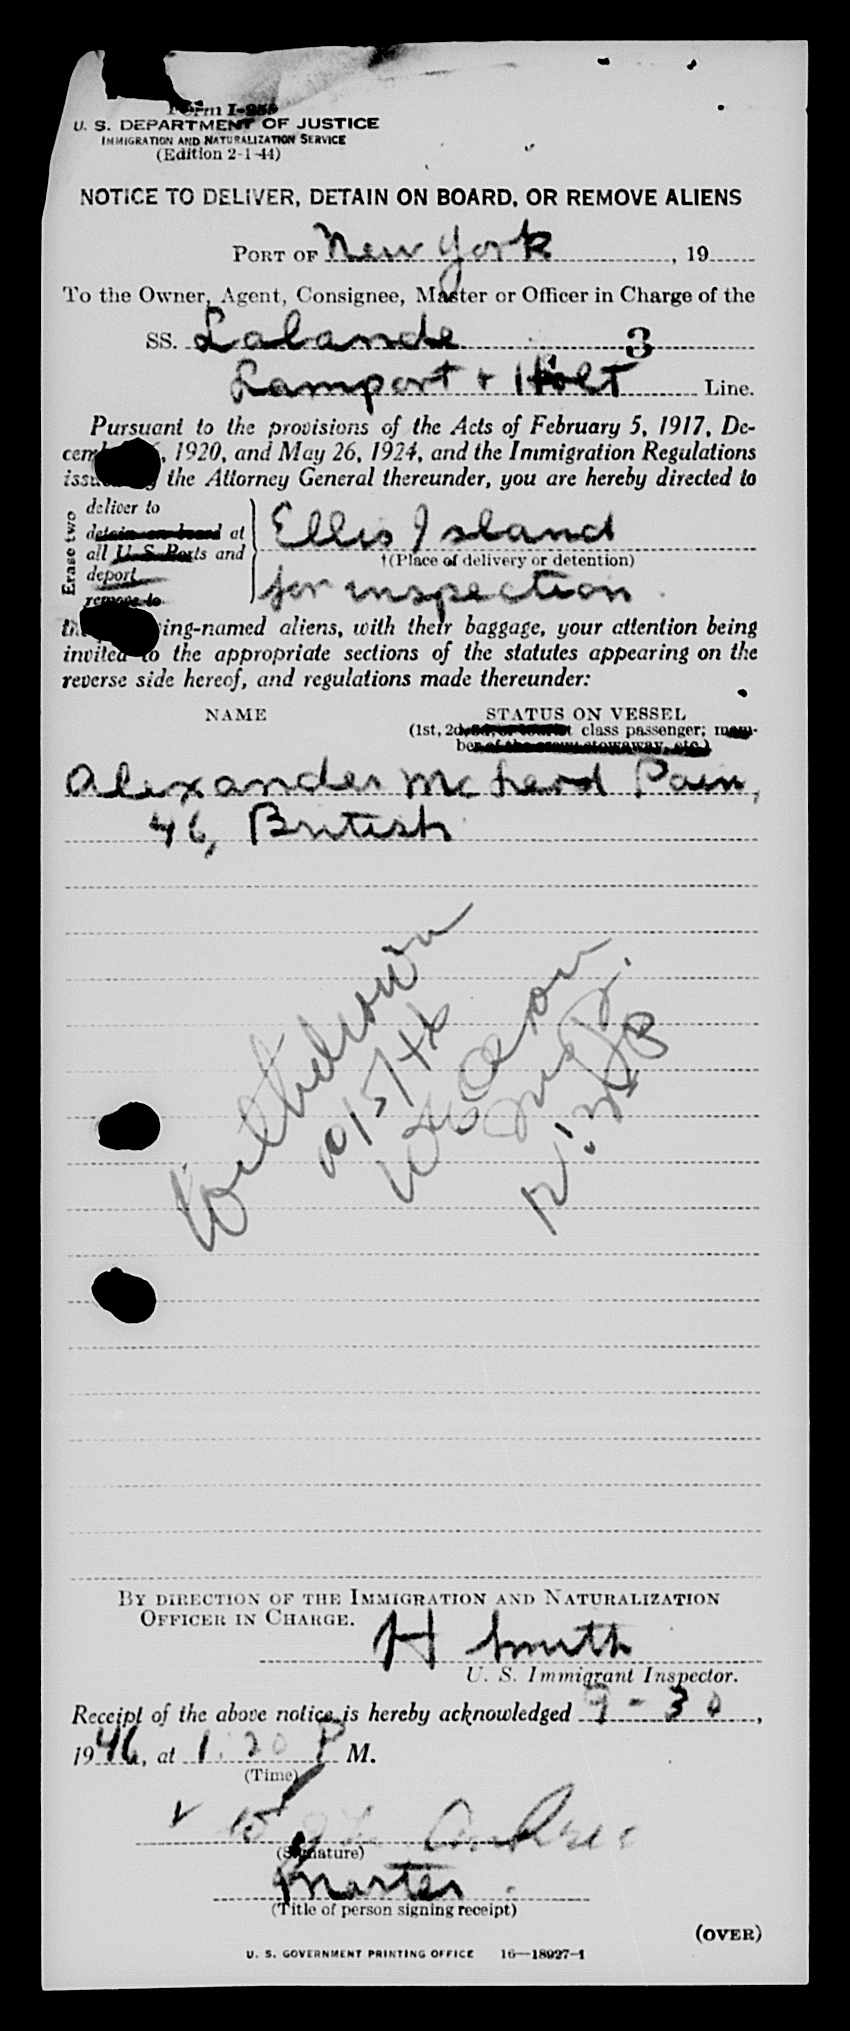 Form I-259
U. S. DEPARTMENT OF JUSTICE
IMMIGRATION AND NATURALIZATION SERVICE
(Edition 2-1-44)
NOTICE TO DELIVER, DETAIN ON BOARD, OR REMOVE ALIENS
PORT OF New York, 19
To the Owner, Agent, Consignee, Master or Officer in Charge of the
SS. Lalande 3
Lamport + Holt Line.
Pursuant to the provisions of the Acts of February 5, 1917, De-
, 1920, and May 26, 1924, and the Immigration Regulations
the Attorney General thereunder, you are hereby directed to
Erase two
deliver to
detain on board at
all U. S. Ports and
deport
remove to
Ellis Island
†(Place of delivery or detention)
for inspection
ing-named aliens, with their baggage, your attention being
invited to the appropriate sections of the statutes appearing on the
reverse side hereof, and regulations made thereunder:
NAME STATUS ON VESSEL
(1st, 2d, 3d, or tourist class passenger; mem-
ber of the crew, stowaway, etc.)
Alexander Mc Leod Pain,
46, British
Withdrawn
10/5/46
BY DIRECTION OF THE IMMIGRATION AND NATURALIZATION
OFFICER IN CHARGE.
H Smith
U. S. Immigrant Inspector.
Receipt of the above notice is hereby acknowledged 9-30,
1946, at 1:20 P M.
(Time)
(Signature)
Master
(Title of person signing receipt)
(OVER)
U. S. GOVERNMENT PRINTING OFFICE 16—18927-1